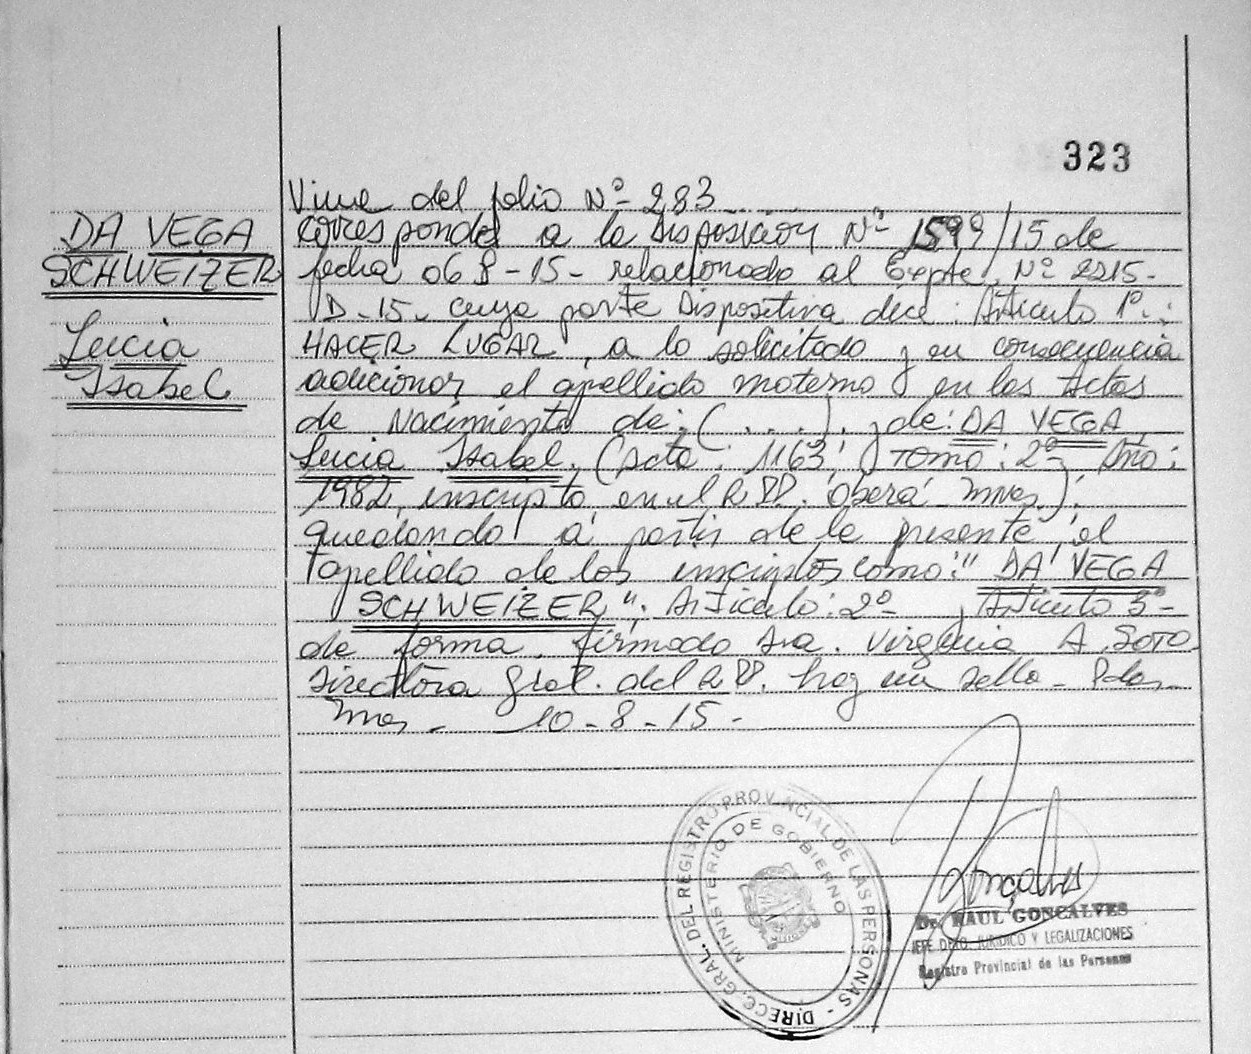 323
Viene del folio Nº 283
DA VEGA
SCHWEIZER
Lucia
Isabel
corresponde a la Disposición Nº 1599/15 de
fecha 06 8-15- relacionado al Expte. Nº 2215-
D-15- cuya parte Dispositiva dice: Articulo 1º:
HACER LUGAR, a lo solicitado y en consecuencia
adicionar el apellido materno, en las Actas
de Nacimiento de: (....), de: DA VEGA
Lucia Isabel, (Acta: 1163, Tomo: 2º, Año:
1982, inscripta en el R PP. Oberá Mnes),
quedando a partir de la presente el
apellido de los inscriptos como: " DA VEGA
SCHWEIZER ". Articulo: 2º- , Articulo 3º-
de forma. firmado Sra. Virginia A. SOTO
Directora Gral. del R PP. hay un sello- Pdas
Mnes- 10-8-15-
DIREC. GRAL. DEL REGISTRO PROVINCIAL DE LAS PERSONAS -
MINISTERIO DE GOBIERNO
MISIONES
Gonçalves
Dr. RAUL GONCALVES
JEFE DPTO. JURIDICO Y LEGALIZACIONES
Registro Provincial de las Personas